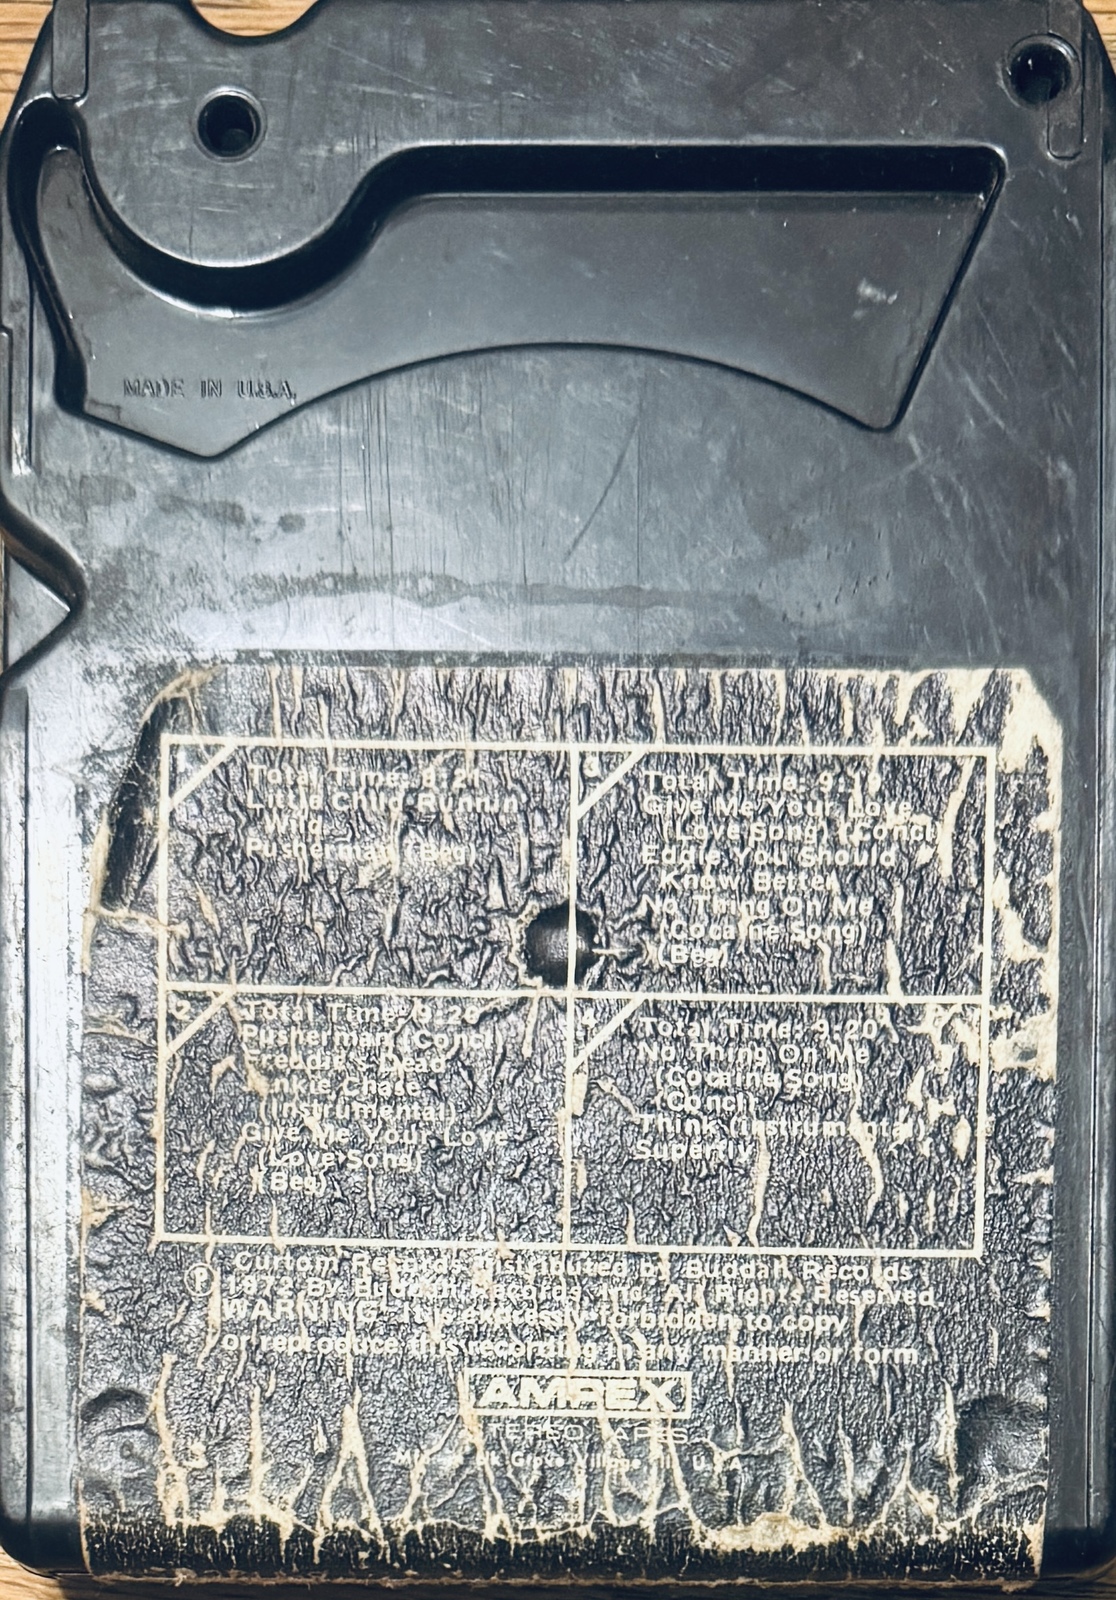 MADE IN U.S.A.
Total Time: 9:21
Little Child Runnin
Wild
Pusherman (Beg)
2
Total Time: 9:20
Pusherman (Concl)
Freddie's Dead
Junkie Chase
(Instrumental)
Give Me Your Love
(Love Song)
(Beg)
3
Total Time: 9:19
Give Me Your Love
(Love Song) (Concl)
Eddie You Should
Know Better
No Thing On Me
(Cocaine Song)
(Beg)
4
Total Time: 9:20
No Thing On Me
(Cocaine Song)
(Concl)
Think (Instrumental)
Superfly
Curtom Records Distributed by Buddah Records
Ⓟ 1972 By Buddah Records, Inc. All Rights Reserved
WARNING: It is expressly forbidden to copy
or reproduce this recording in any manner or form
AMPEX
STEREO TAPES
Grove Village Ill U.S.A.